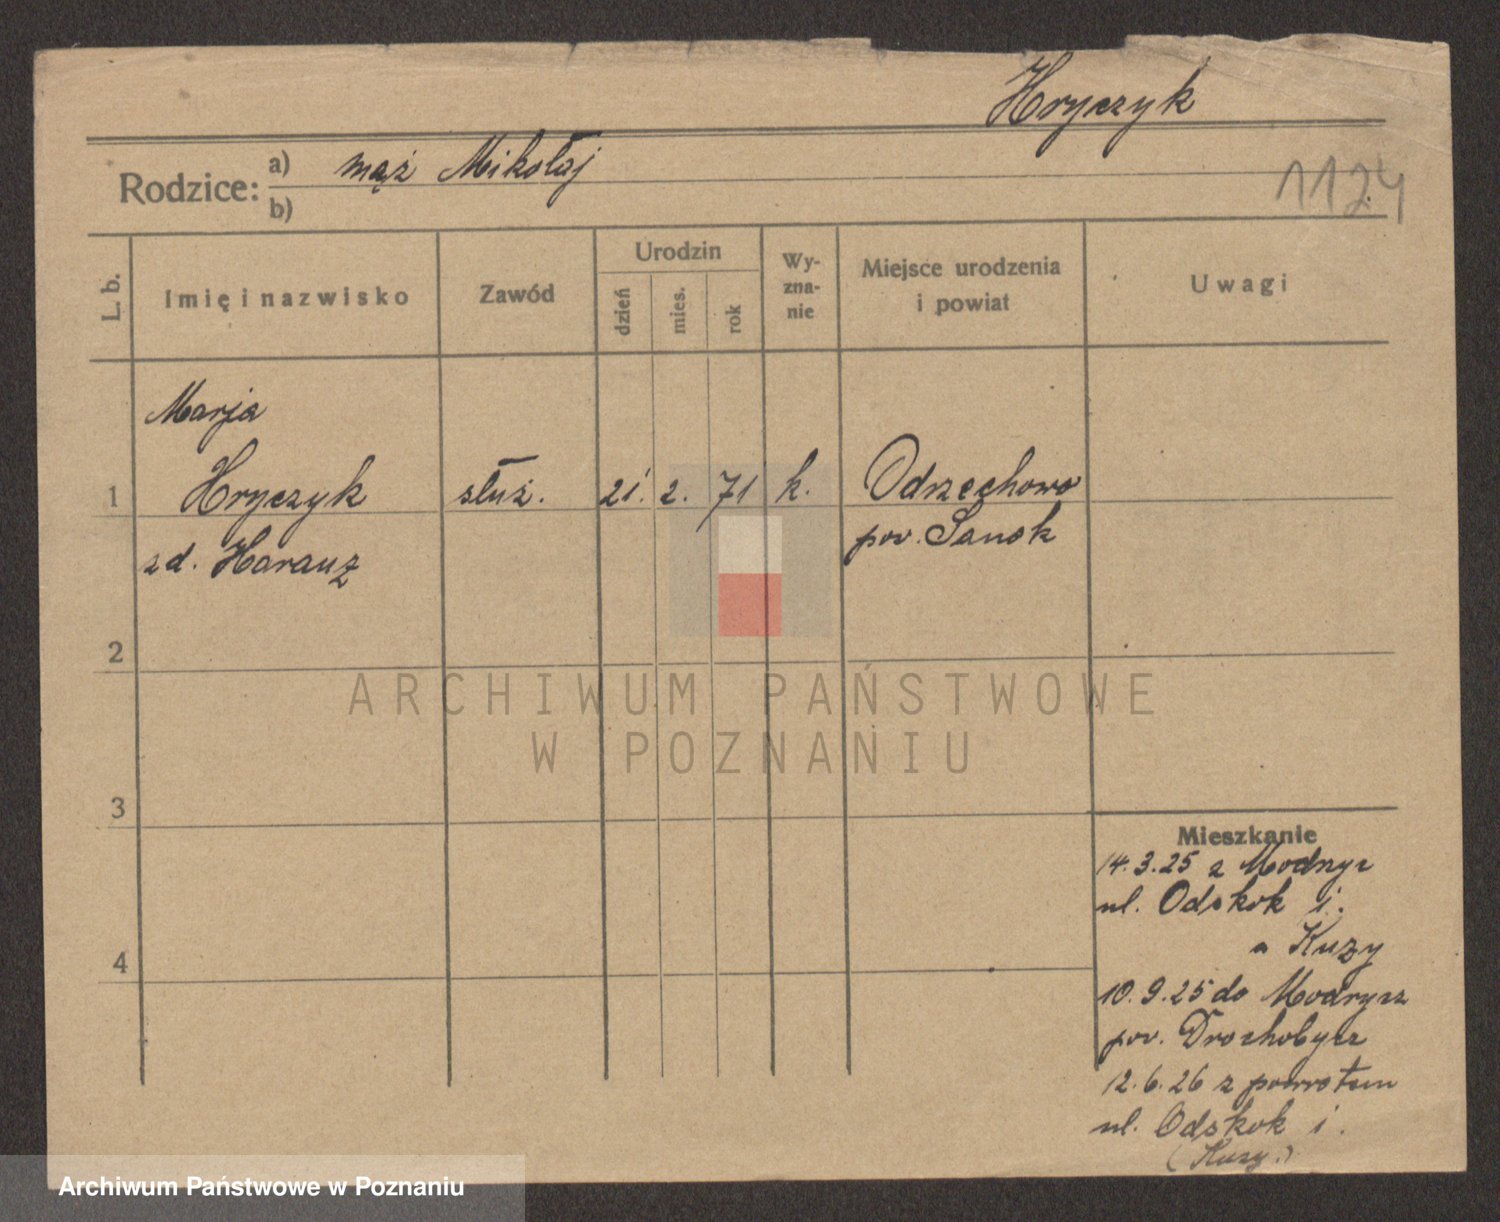 Hryczyk
Rodzice: a) mąż Mikołaj
b)
1124
L. b.
Imię i nazwisko
Zawód
Urodzin
dzień
mies.
rok
Wy-
zna-
nie
Miejsce urodzenia
i powiat
Uwagi
Marja
1 Hryczyk służ. 21. 2. 71 k. Odrzechowa
zd. Harauz pov. Sanok
2
3
4
ARCHIWUM PAŃSTWOWE
W POZNANIU
Mieszkanie
14.3.25 z Modrycz
ul. Odskok 1.
a Kuzy
10.9.25 do Modrycz
pov. Drohobycz
12.6.26 z powrotem
ul. Odskok 1.
(Kuzy.)
Archiwum Państwowe w Poznaniu